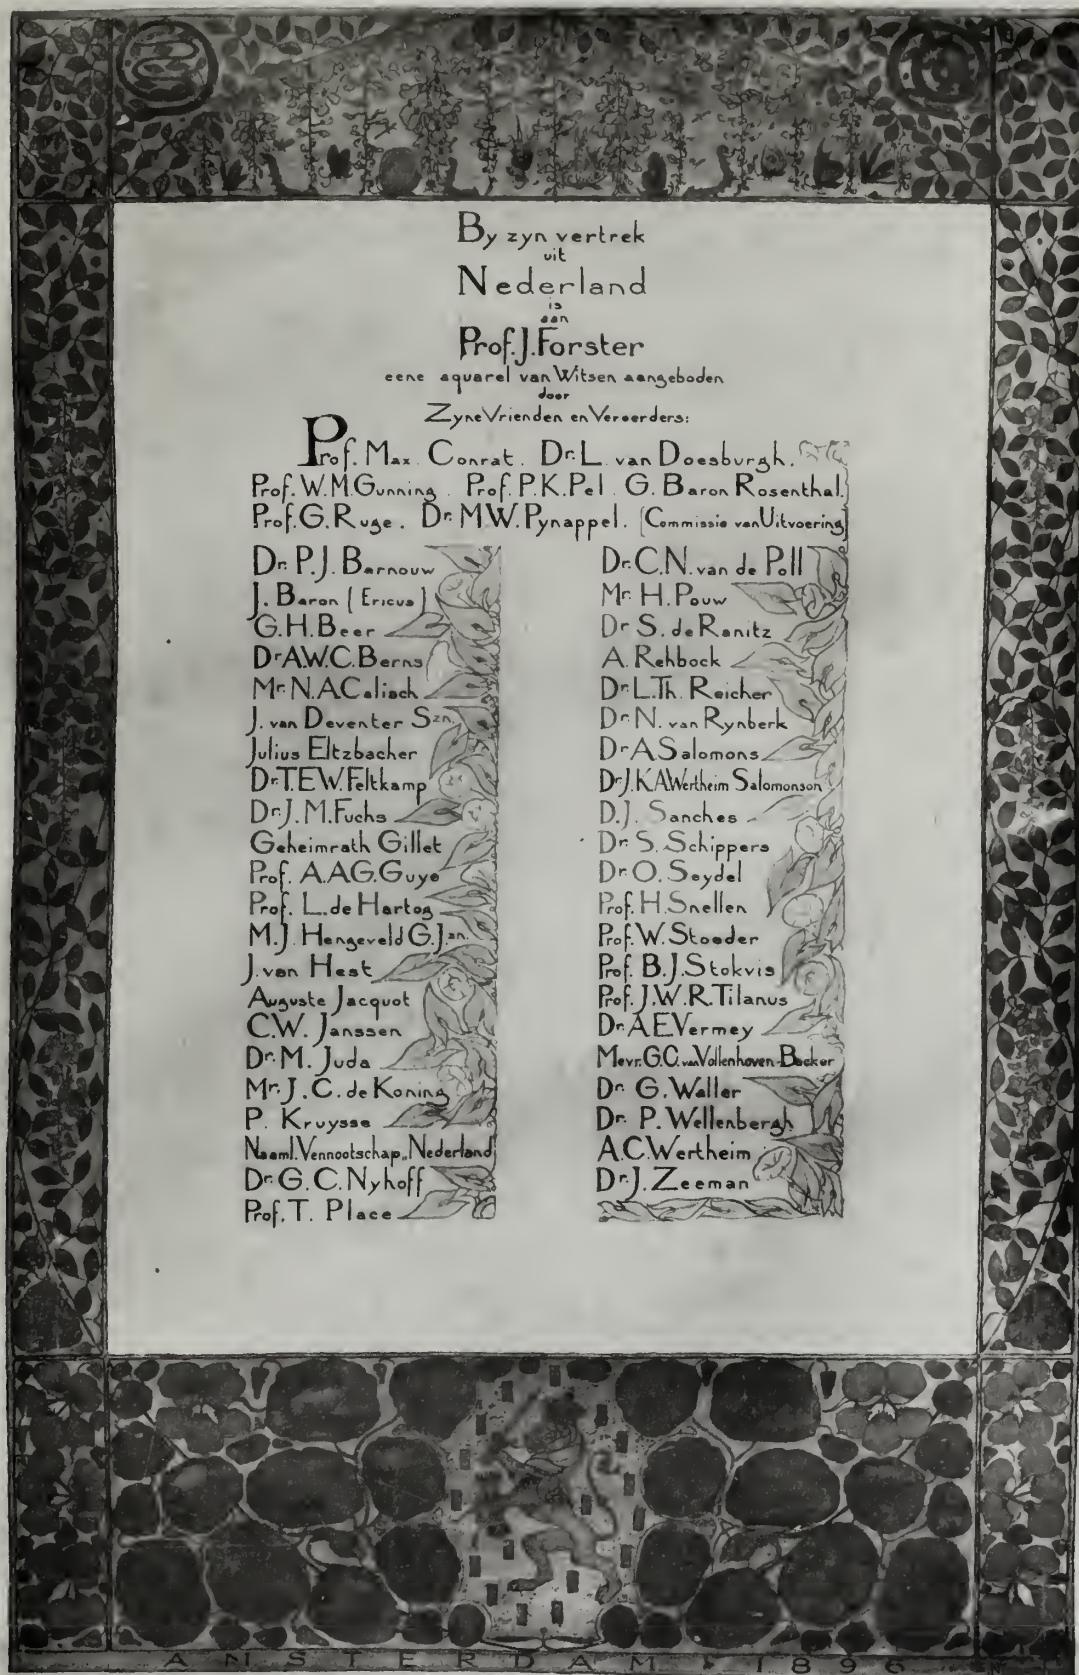 By zyn vertrek
uit
Nederland
is
aan
Prof. J. Forster
eene aquarel van Witsen aangeboden
door
Zyne Vrienden en Vereerders:
Prof. Max Conrat. Dr. L. van Doesburgh.
Prof. W. M. Gunning. Prof. P. K. Pel. G. Baron Rosenthal.
Prof. G. Ruge. Dr. M W. Pynappel. (Commissie van Uitvoering)
Dr. P. J. Barnouw
J. Baron (Ericus)
G. H. Beer
Dr A. W. C. Berns
Mr. N. A Calisch
J. van Deventer Szn.
Julius Eltzbacher
Dr. T. E. W. Feltkamp
Dr. J. M. Fuchs
Geheimrath Gillet
Prof. A. A G. Guye
Prof. L. de Hartog
M. J. Hengeveld G. Jzn.
J. van Hest
Auguste Jacquot
C. W. Janssen
Dr. M. Juda
Mr. J. C. de Koning
P. Kruysse
Naaml. Vennootschap „Nederland"
Dr. G. C. Nyhoff
Prof. T. Place
Dr. C. N. van de Poll
Mr. H. Pouw
Dr S. de Ranitz
A. Rehbock
Dr. L. Th. Reicher
Dr. N. van Rynberk
Dr A Salomons
Dr. J. K. A. Wertheim Salomonson
D. J. Sanches
Dr. S. Schippers
Dr. O. Seydel
Prof. H. Snellen
Prof. W. Stoeder
Prof. B. J. Stokvis
Prof. J. W. R. Tilanus
Dr. A E Vermey
Mevr. G. C. van Vollenhoven-Backer
Dr. G. Waller
Dr. P. Wellenbergh
A. C. Wertheim
Dr. J. Zeeman
AMSTERDAM 1896